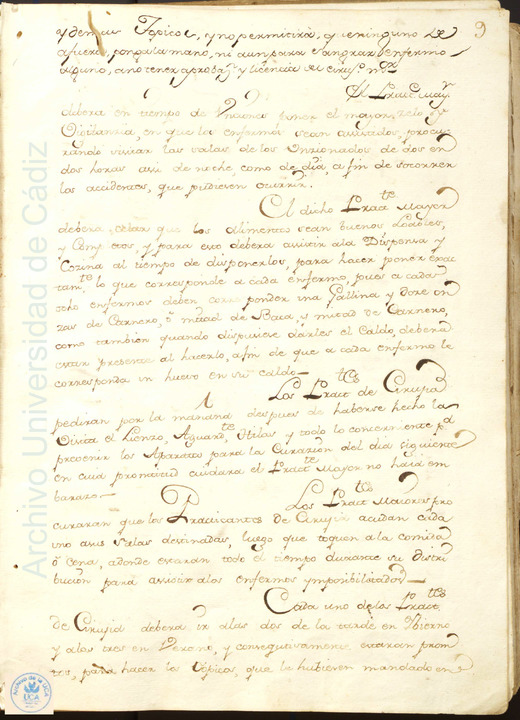 9
y demas Topicos, y no permitirá, que ninguno de
afuera, ponga la mano, ni aun para Sangrar enfermo
alguno, a no tener aprobaz.n y licencia del Ciruj.o m.or
El Pract. May.r
debera en tiempo de Unciones tener el mayor zelo, y
Vigilancia en que los enfermos sean asistidos, procu
rando visitar las salas de los Uncionados de dos en
dos horas asi de noche, como de dia, a fin de socorrer
los accidentes, que pudiesen ocurrir.
El dicho Pract.te Mayor
debera, celar que los alimentos sean buenos
y Completos, y para eso debera asistir ala Dispensa y
Cozina al tiempo de disponerlos, para hacer poner exac
tam.te lo que corresponde a cada enfermo, pues a cada
ocho enfermos deben corresponder una Gallina y doze on
zas de Carnero, ô mitad de Baca, y mitad de Carnero,
como tambien quando dispusiere darles el Caldo, deberá
estar presente al hacerlo, afin de que a cada enfermo le
corresponda un huevo en su caldo
Los Pract.tes de Cirujia
pediran por la mañana despues de haberse hecho la
Visita el Lienzo, Aguard.te, Hilas y todo lo concerniente p.a
prevenir los Aparatos para la Curazion del dia siguiente
en cuia promptitud cuidara el Pract.te Mayor no haia em
barazo
Los Pract.tes Maiores pro
curaran que los Practicantes de Cirujia acudan cada
uno asus Salas destinadas, luego que toquen a la comida
ô Cena, adonde estaran todo el tiempo durante su distri
bución para asistir alos enfermos ymposibilitados
Cada uno de los Pract.tes
de Cirujia debera ir alas dos de la tarde en Ybierno
y alas tres en Verano, y consequtivamente estaran prom
tos, para hacer los Topicos, que le hubiesen mandado en
Archivo Universidad de Cádiz
Archivo de la UCA
UCA